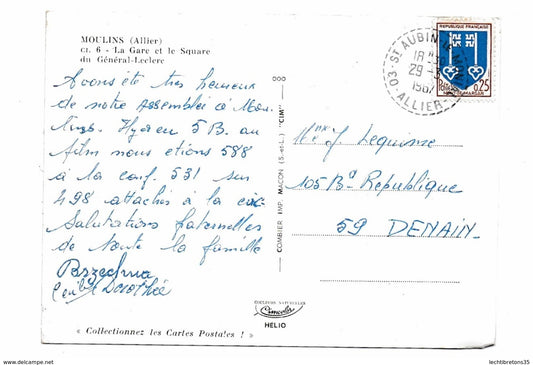 MOULINS (Allier)
Cl. 6 - La Gare et le Square
du Général-Leclerc
Avons été très heureux
de notre assemblée à Mou
lins. Il y a eu 5 B. au
film nous etions 588
à la conf. 531 sur
498 attachés à la circ.
Salutations fraternelles
de toute la famille
Dorothée
« Collectionnez les Cartes Postales ! »
COMBIER IMP. MACON (S.-et-L.) "CIM"
COULEURS NATURELLES
HÉLIO
REPUBLIQUE FRANÇAISE
0,25
MONT-DE-MARSAN
03 - ST AUBIN
18 H
29-3
1967
ALLIER
J. Lequime
105 Bd République
59 DENAIN
https://www.delcampe.net
lechtibretons35